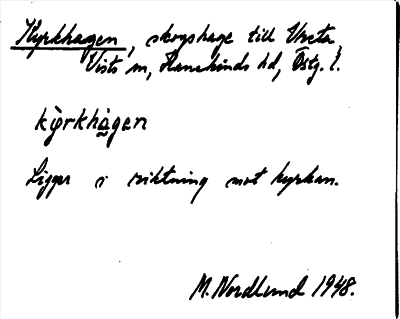 Kyrkhagen, skogshage till Vreta,
Vists sn, Hanekinds hd, Östg. l.
kỳrkhàgen
Ligger i riktning mot kyrkan.
M. Nordlund 1948.